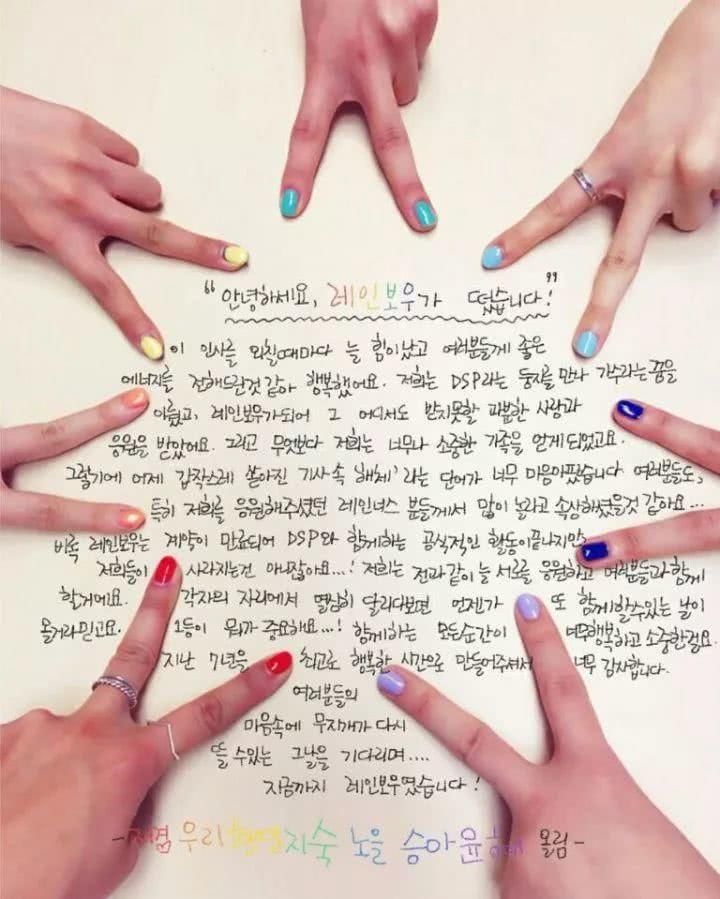 “ 안녕하세요, 레인보우가 떴습니다! ”
이 인사를 외칠때마다 늘 힘이났고 여러분들께 좋은
에너지를 전해드린것 같아 행복했어요. 저희는 DSP라는 둥지를 만나 가수라는 꿈을
이뤘고, 레인보우가되어 그 어디서도 받지못할 과분한 사랑과
응원을 받았어요. 그리고 무엇보다 저희는 너무나 소중한 가족을 얻게되었고요.
그렇기에 어제 갑작스레 쏟아진 기사 속 '해체' 라는 단어가 너무 마음아팠습니다. 여러분들도,
특히 저희를 응원해주셨던 레인너스 분들께서 많이 놀라고 속상해했을것 같아요...
비록 레인보우는 계약이 만료되어 DSP와 함께하는 공식적인 활동이끝나지만
저희들이 사라지는건 아니잖아요...! 저희는 전과같이 늘 서로를 응원하고 여러분들과 함께
할거에요. 각자의 자리에서 열심히 달리다보면 언젠가 또 함께할수있는 날이
올거라믿고요. 1등이 뭐가 중요해요...! 함께하는 모든순간이 너무행복하고 소중한걸요.
지난 7년을 최고로 행복한 시간으로 만들어주셔서 너무 감사합니다.
여러분들의
마음속에 무지개가 다시
뜰 수있는 그날을 기다리며....
지금까지 레인보우였습니다!
- 재경 우리 현영 지숙 노을 승아 윤혜 올림 -